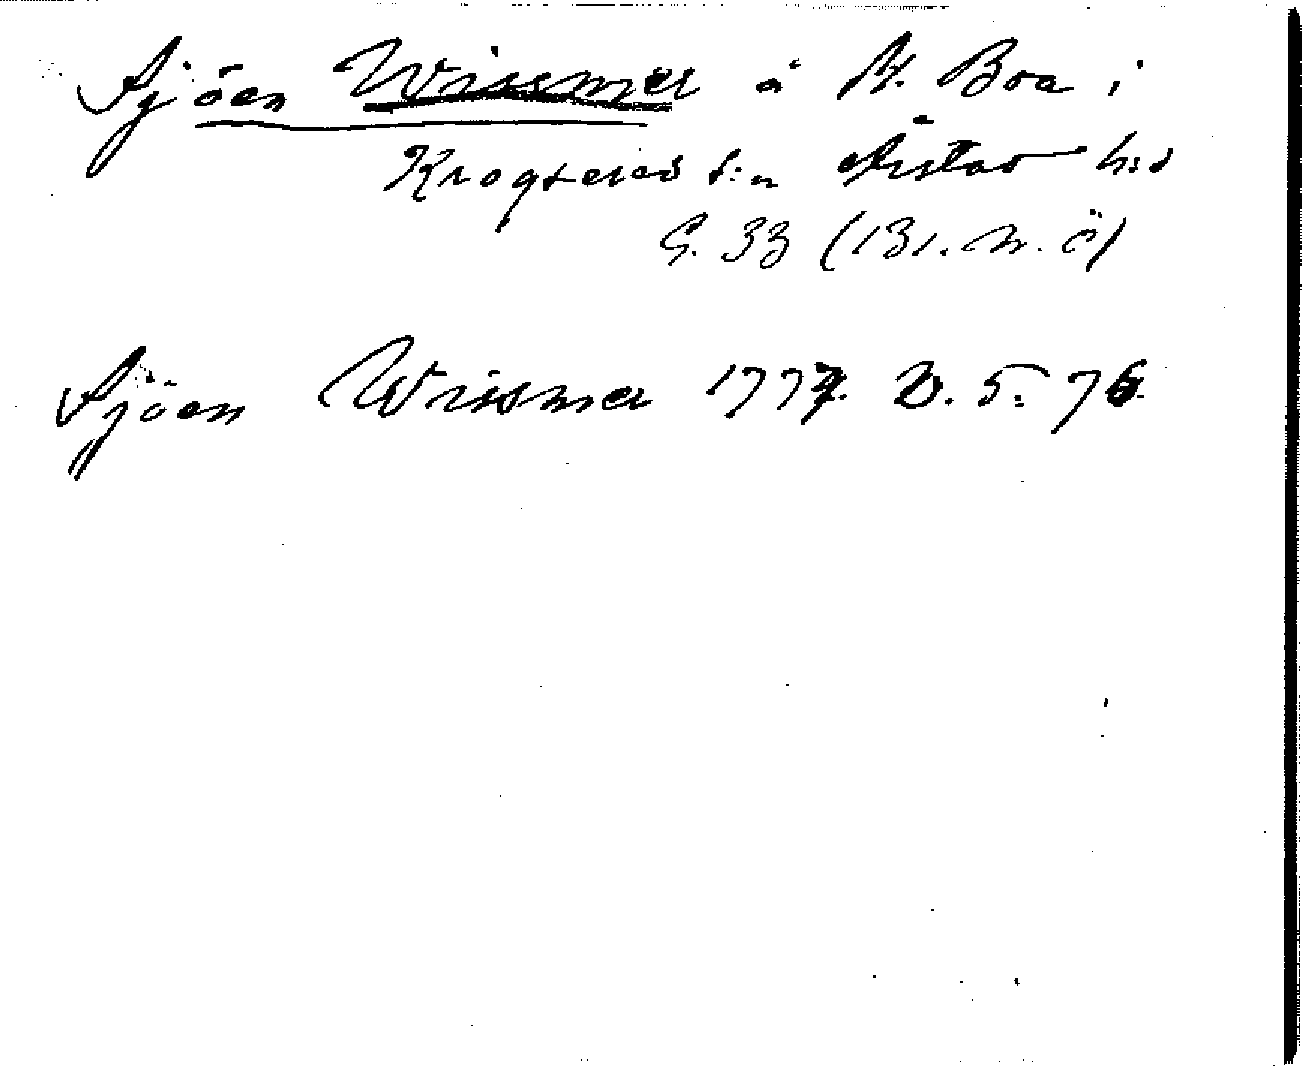 Sjöen Wissmer å St. Boa i
Krogsered s:n Årstad hrd
G. 33 (131. n. ö)
Sjöen Wissmer 1777. D. 5: 76.